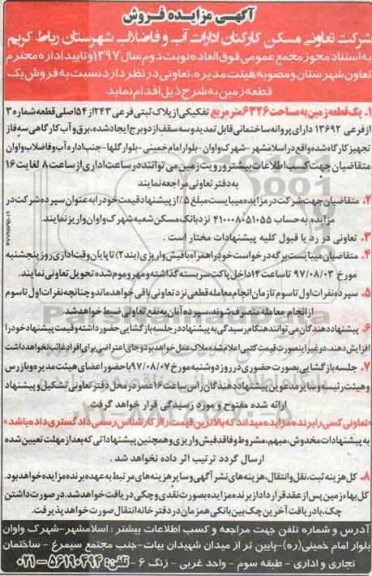 آگهی مزایده فروش
شرکت تعاونی مسکن کارکنان ادارات آب و فاضلاب شهرستان رباط کریم
به استناد مجوز مجمع عمومی فوق العاده نوبت دوم سال ۱۳۹۷ و تایید اداره محترم
تعاون شهرستان و مصوبه هیئت مدیره، تعاونی در نظر دارد نسبت به فروش یک
قطعه زمین به شرح ذیل اقدام نماید
۱. یک قطعه زمین به مساحت ۶۳۲۶ متر مربع تفکیکی از پلاک ثبتی فرعی ۲۴۳ از ۵۴ اصلی قطعه شماره ۳
از فرعی ۱۳۶۹۲ دارای پروانه ساختمانی قابل تمدید وسه سقف از دو برج ایجاد شده، برق و آب کارگاهی سه فاز
تجهیز کارگاه شده واقع در اسلامشهر - شهرک واوان - بلوار امام خمینی - بلوار گلها - جنب اداره آب و فاضلاب واوان
متقاضیان جهت کسب اطلاعات بیشتر و رویت زمین می توانند در ساعت اداری از ساعت ۸ لغایت ۱۶
به دفتر تعاونی مراجعه نمایند
۲. متقاضیان جهت شرکت در مزایده میبایست مبلغ ۵٪ از پیشنهاد قیمت خود را به عنوان سپرده شرکت در
مزایده به حساب ۴۱۰۰۰۸۰۵۱۰۵۵ نزد بانک مسکن شعبه شهرک واوان واریز نمایند.
۳. تعاونی در رد یا قبول کلیه پیشنهادات مختار است.
۴. متقاضیان میبایست برگه درخواست خود را همراه با فیش واریزی (بند۲) تا پایان وقت اداری روز پنجشنبه
مورخ ۹۷/۰۸/۰۳ تا ساعت ۱۴ داخل پاکت سربسته گذاشته و مهر و موم شده تحویل تعاونی نمایند.
۵. سپرده نفرات اول تا سوم تا زمان انجام معامله قطعی نزد تعاونی باقی خواهد ماند و چنانچه نفرات اول تا سوم
از انجام معامله منصرف شوند، سپرده آنان به نفع تعاونی ضبط خواهد شد.
۶. پیشنهاد دهندگان می توانند هنگام رسیدگی به پیشنهاد در جلسه بازگشایی حضور داشته و قیمت پیشنهاد خود را
افزایش دهند. در غیر اینصورت قیمت کتبی اعلام شده ملاک عمل خواهد بود و جای اعتراضی برای افراد غائب نخواهد داشت
۷. جلسه بازگشایی بصورت حضوری در روز دوشنبه مورخ ۹۷/۰۸/۰۷ با حضور اعضای هیئت مدیره و بازرس
و هیئت رئیسه و سایر مدعوین و پیشنهاد دهندگان راس ساعت ۱۶ عصر در محل دفتر تعاونی تشکیل و پیشنهاد
ارائه شده مفتوح و مورد رسیدگی قرار خواهد گرفت
«تعاونی کسی را برنده مزایده میداند که بالاترین قیمت را از کارشناس رسمی دادگستری داده باشد»
به پیشنهادات مخدوش، مبهم، مشروط و فاقد فیش واریزی و همچنین پیشنهاداتی که بعد از مهلت تعیین شده
ارسال گردد ترتیب اثر داده نخواهد شد.
۸. کل هزینه ثبت، نقل و انتقال، هزینه های نشر آگهی و سایر هزینه های مرتبط به عهده برنده مزایده خواهد بود.
کل بهاء زمین پس از عقد قرار داد از برنده مزایده بصورت نقدی و چکی دریافت خواهد شد. در صورت داشتن
چک، با دریافت آخرین چک بین بانکی همان روز در دفتر خانه انتقال صورت خواهد پذیرفت.
آدرس و شماره تلفن جهت مراجعه و کسب اطلاعات بیشتر: اسلامشهر-شهرک واوان
بلوار امام خمینی(ره)-پایین تر از میدان شهیدان بیات-جنب مجتمع سیمرغ - ساختمان
تجاری و اداری - طبقه سوم - واحد غربی - زنگ ۶ - تلفن: ۵۶۱۹۰۴۹۳-۰۲۱